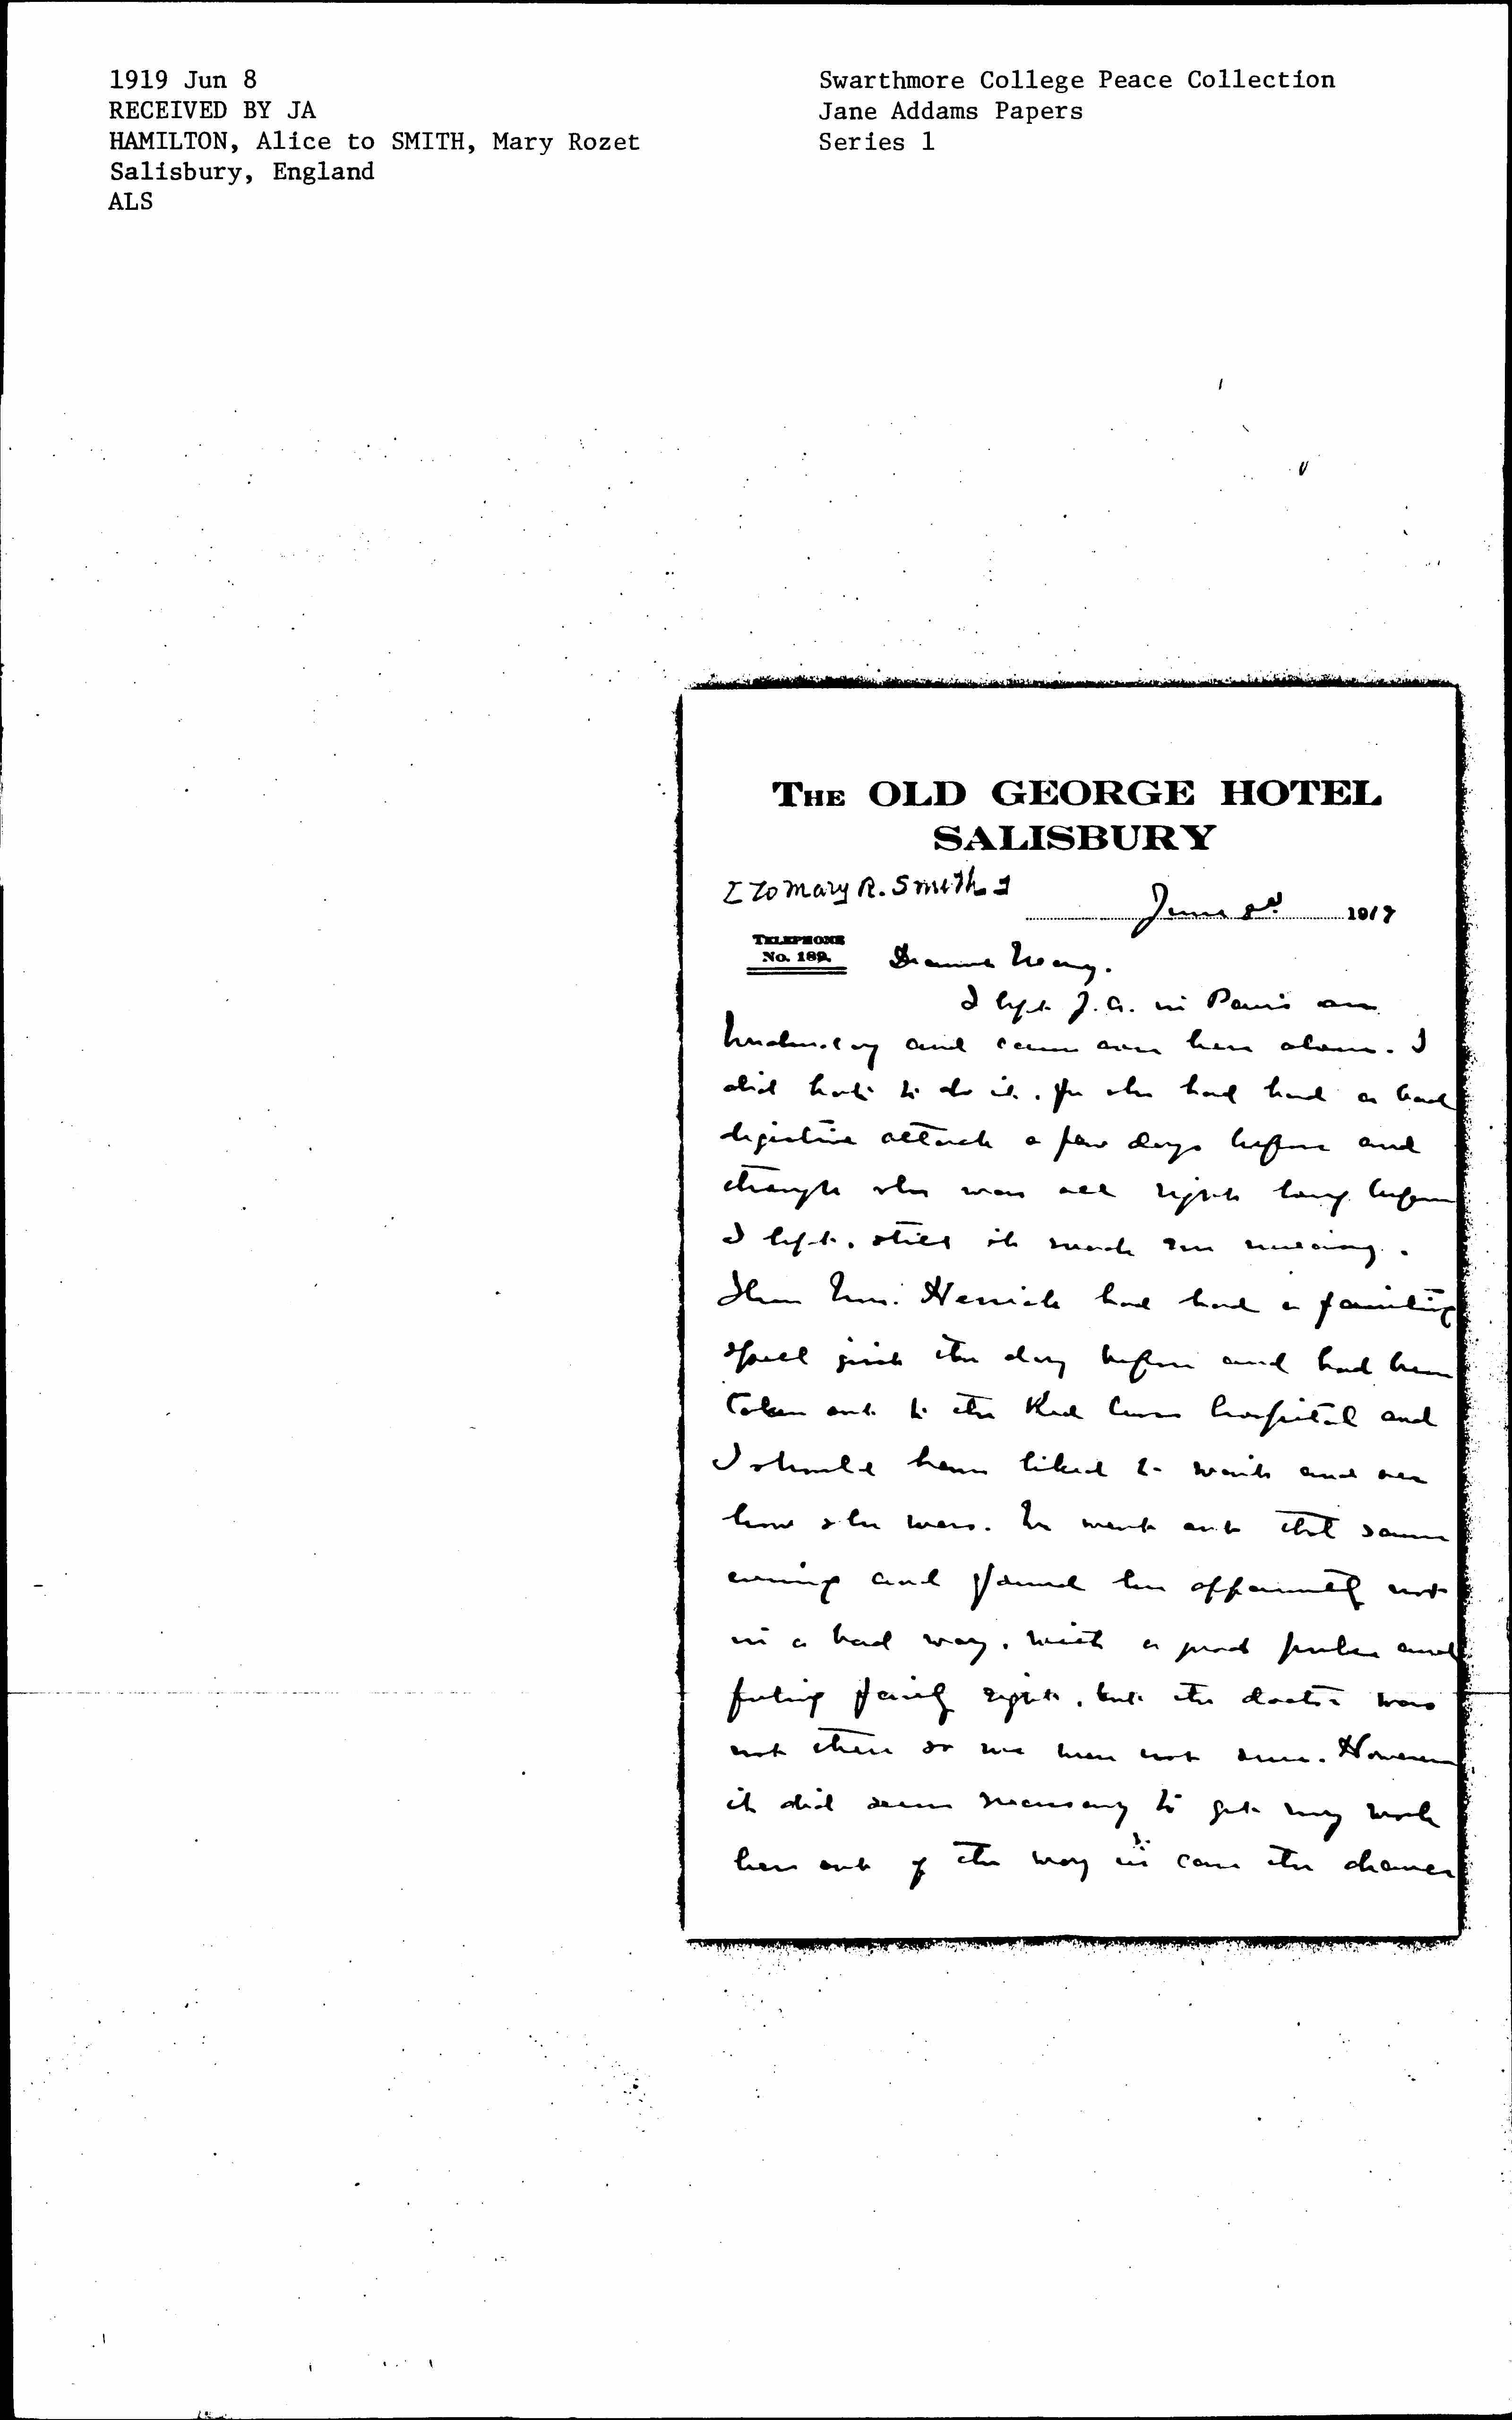 1919 Jun 8
RECEIVED BY JA
HAMILTON, Alice to SMITH, Mary Rozet
Salisbury, England
ALS
Swarthmore College Peace Collection
Jane Addams Papers
Series 1
THE OLD GEORGE HOTEL
SALISBURY
[To Mary R. Smith]
June 8th 1919
TELEPHONE
No. 189.
Dearest Mary.
I left J.A. in Paris on
Wednesday and came over here alone. I
did hate to do it, for she had had a bad
digestive attack a few days before and
though she was all right long before
I left, still it made me uneasy.
Then Mrs. Herrick had had a fainting
spell just the day before and had been
taken out to the Red Cross hospital and
I should have liked to wait and see
how she was. We went out that same
evening and found her apparently not
in a bad way, with a good pulse and
feeling fairly right, but the doctor was
not there so we were not sure. However
it did seem necessary to get my work
here out of the way in case the chance